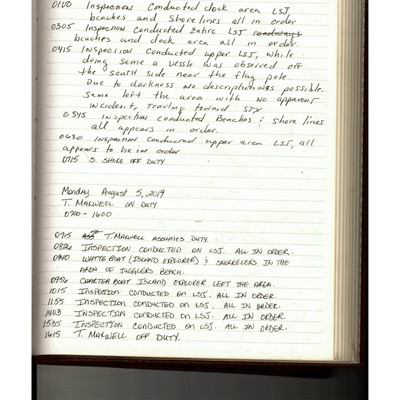 0100 Inspection Conducted dock area LSJ
beaches and Shore lines all in order
0305 Inspection Conducted Entire LSJ
beaches and dock area all in order
0415 Inspection Conducted upper LSJ, while
doing same a vessle was observed off
the south side near the flag pole.
Due to darkness no description was possible.
Same left the area with no apparent
incident, Travling toward STX
0545 Inspection Conducted Beaches & shore lines
all appears in order.
0630 Inspection Conducted upper area LSJ, all
appears to be in order
0715 S. Shore OFF DUTY
Monday August 5, 2019
T. MAXWELL ON DUTY
0700 - 1600
0715 T. MAXWELL ASSUMES DUTY.
0826 INSPECTION CONDUCTED ON LSJ. ALL IN ORDER.
0940 WHITE BOAT (ISLAND EXPLORER) & SNORKELERS IN THE
AREA OF JUGGLERS BEACH.
0956 CHARTER BOAT ISLAND EXPLORER LEFT THE AREA.
1015 INSPECTION CONDUCTED ON LSJ. ALL IN ORDER.
1155 INSPECTION CONDUCTED ON LSJ. ALL IN ORDER.
1403 INSPECTION CONDUCTED ON LSJ. ALL IN ORDER.
1535 INSPECTION CONDUCTED ON LSJ. ALL IN ORDER.
1615 T. MAXWELL OFF DUTY.